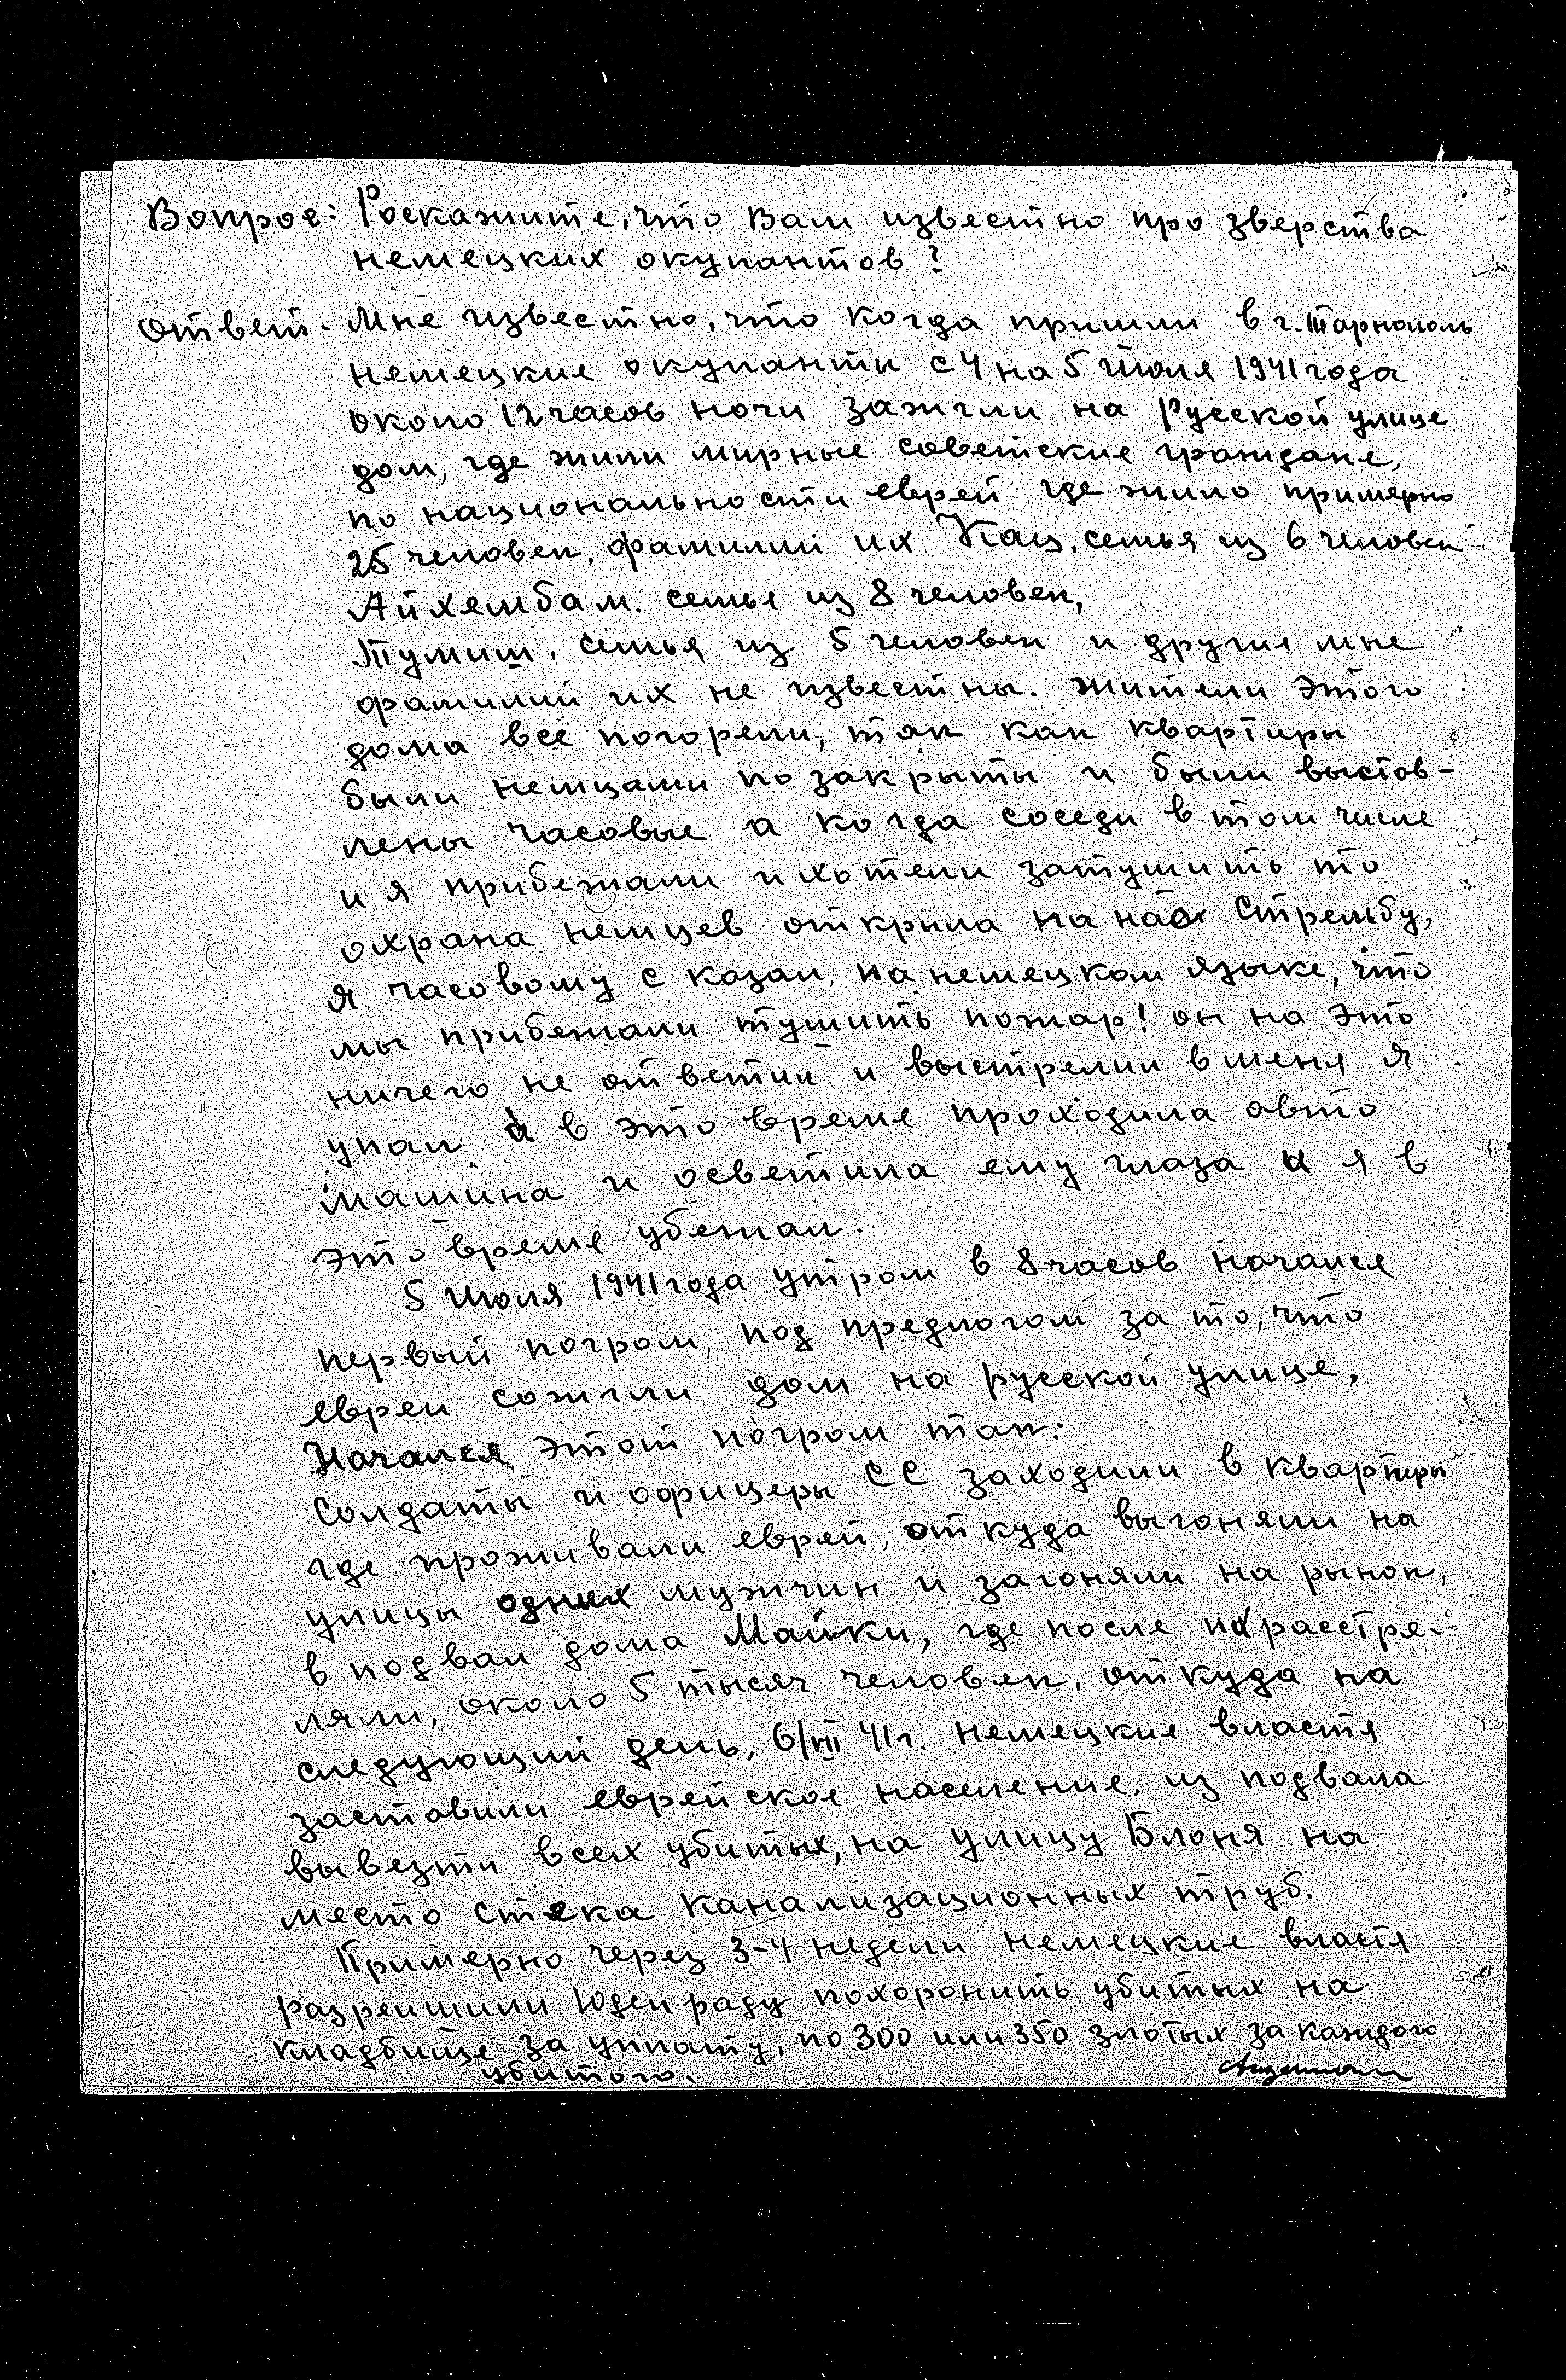 Вопрос: Роскажите, что Вам известно про зверства
немецких окупантов?
Ответ. Мне известно, что когда пришли в г. Тарнополь
немецкие окупанти с 4 на 5 июля 1941 года
около 12 часов ночи зажгли на Русской улице
дом, где жили мирные советские граждане,
по национальности еврей где жило примерно
25 человек, фамилии их Кац, семья из 6 человек
Айхенбам. семья из 8 человек,
Тумиш, семья из 5 человек и другие мне
фамилии их не известны. жители этого
дома все погорели, так как квартиры
были немцами по закрыты и были выстов-
лены часовые а когда соседи в том числе
и я прибежали и хотели затушить то
охрана немцев открыла на нас стрельбу,
я часовому сказал, на немецком языке, что
мы прибежали тушить пожар! он на это
ничего не ответил и выстрелил в меня я
упал а в это время проходила авто
машина и осветила ему глаза и я в
это время убежал.
5 июля 1941 года утром в 8 часов начался
первый погром, под предлогом за то, что
евреи сожгли дом на русской улице,
Начался этот погром так:
Солдаты и офицеры СС заходили в квартиры
где проживали еврей, откуда выгоняли на
улицы одних мужчин и загоняли на рынок,
в подвал дома Майки, где после их расстре-
ляли, около 5 тысяч человек, откуда на
следующий день, 6/VII 41 г. немецкие властя
заставили еврейское население, из подвала
вывезти всех убитых, на улицу Блоня на
место стека канализационных труб.
Примерно через 3-4 недели немецкие властя
разрешили Юденраду похоронить убитых на
кладбище за уплату, по 300 или 350 злотых за каждого
убитого.